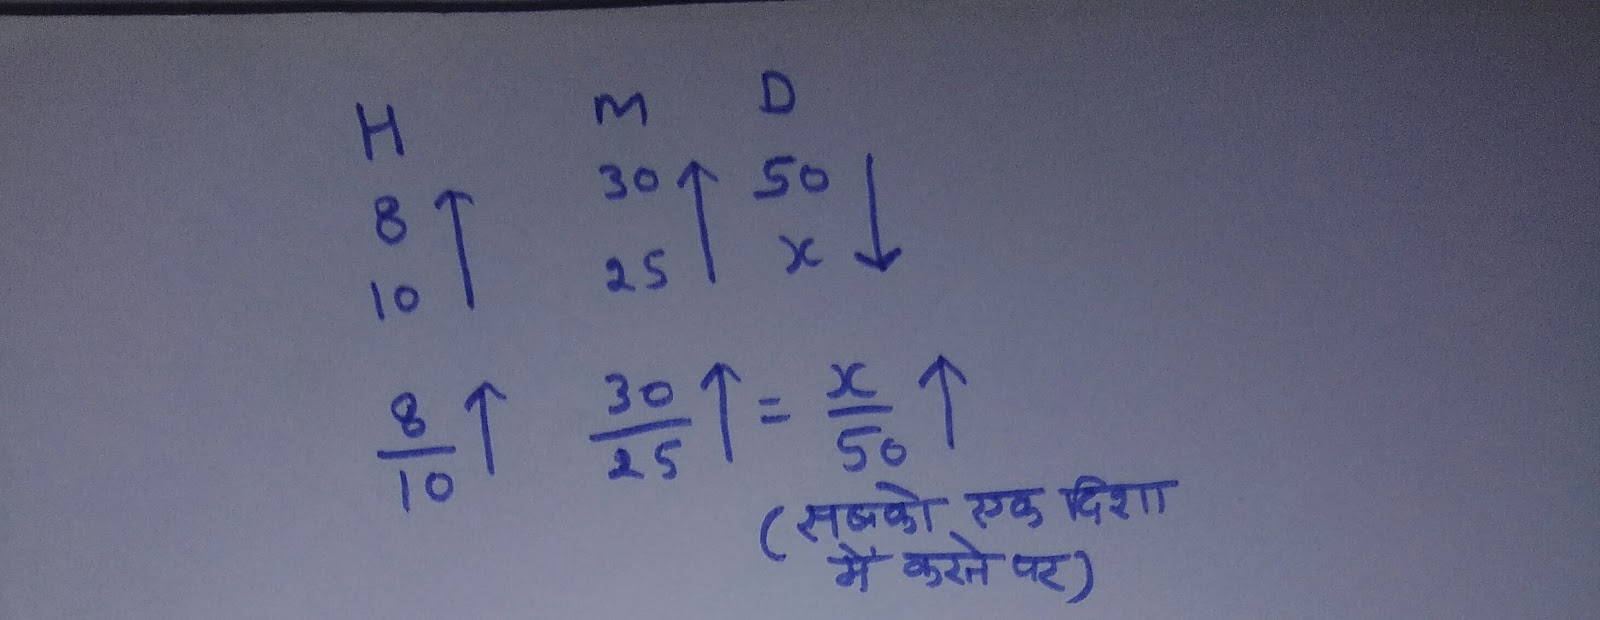 H M D
8 ↑ 30 ↑ 50 ↓
10 25 x
8/10 ↑ 30/25 ↑ = x/50 ↑
(सबको एक दिशा
में करने पर)